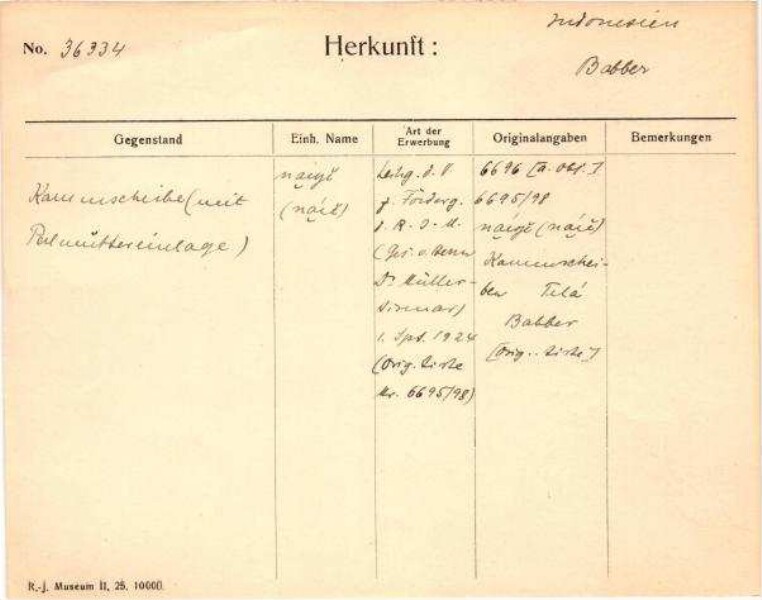 Indonesien
No. 36334 Herkunft:
Babber
Gegenstand Einh. Name Art der Erwerbung Originalangaben Bemerkungen
Kammscheibe (mit
Perlmuttereinlage)
(náiĕ)
Leihg. d. V.
z. Förderg.
d. R-J-M.
(Ges. v. Herrn
Dr Müller-
Wismar)
1. Spt. 1924
(Orig. Liste
Nr. 6695/98)
6696 [a. Obj.]
6695/98
(náiĕ)
Kammschei-
ben Telá
Babber
[Orig.-Liste]
R.-J. Museum II, 25. 10000.